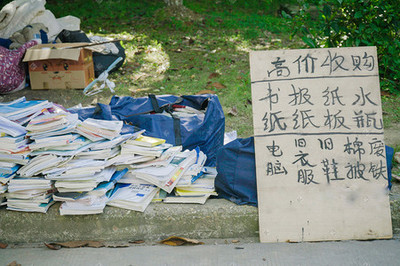 高价收购
书纸
报纸
纸板
水瓶
电脑
旧衣服
旧鞋
棉被
废铁